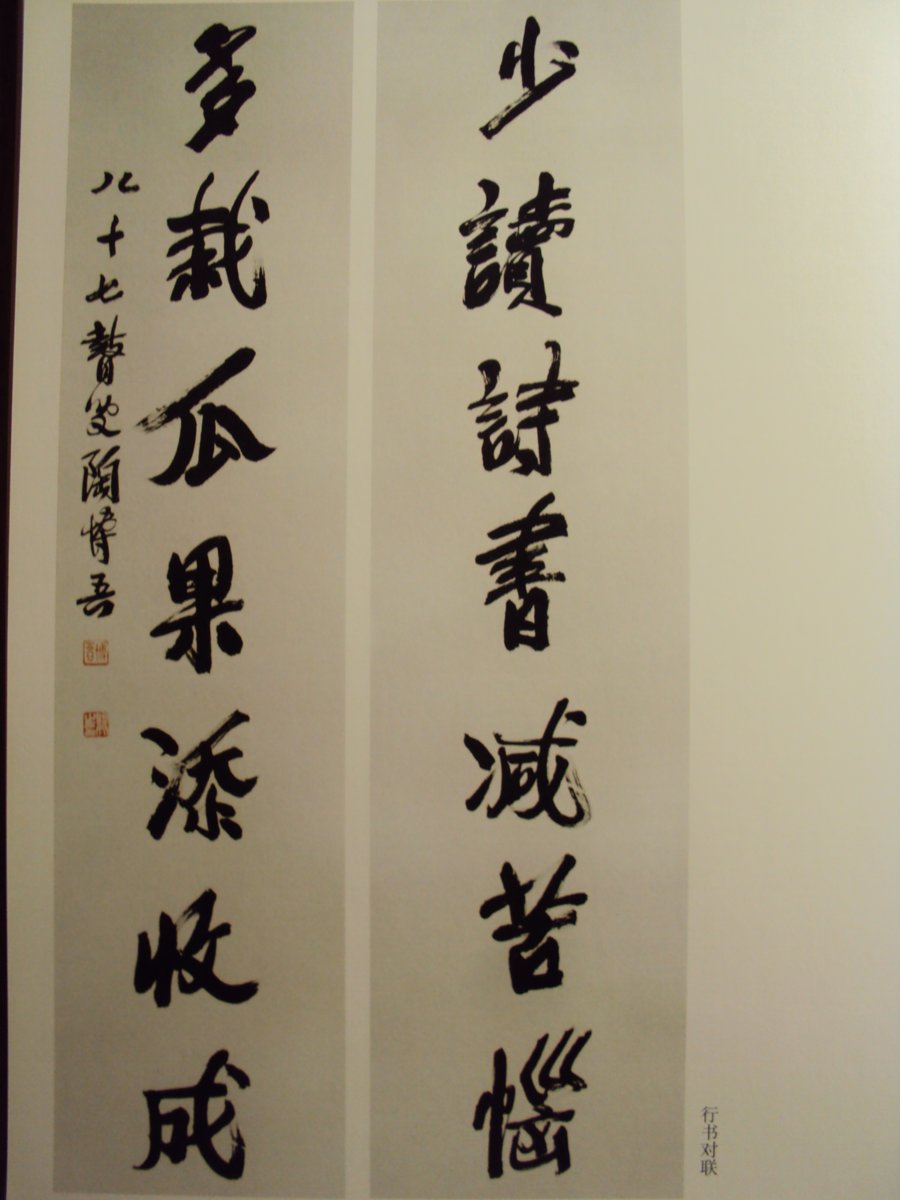 少讀詩書减苦惱
多栽瓜果添收成
八十七瞽叟陶博吾
行书对联